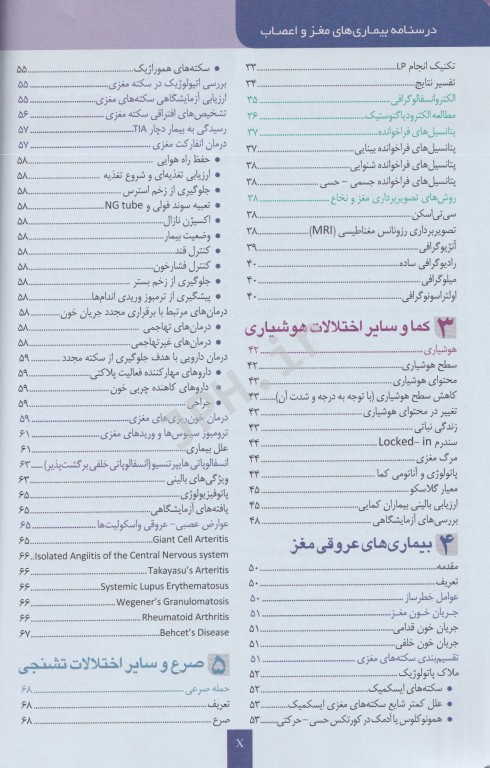 درسنامه بیماری‌های مغز و اعصاب
تکنیک انجام LP ۳۳
تفسیر نتایج ۳۴
الکتروانسفالوگرافی ۳۵
مطالعه الکترودیاگنوستیک ۳۶
پتانسیل‌های فراخوانده ۳۷
پتانسیل‌های فراخوانده بینایی ۳۷
پتانسیل‌های فراخوانده شنوایی ۳۸
پتانسیل‌های فراخوانده جسمی - حسی ۳۸
روش‌های تصویربرداری مغز و نخاع ۳۸
سی‌تی‌اسکن ۳۸
تصویربرداری رزونانس مغناطیسی (MRI) ۳۸
آنژیوگرافی ۳۹
رادیوگرافی ساده ۴۰
میلوگرافی ۴۰
اولتراسونوگرافی ۴۰
۳ کما و سایر اختلالات هوشیاری
هوشیاری ۴۲
سطح هوشیاری ۴۲
محتوای هوشیاری ۴۳
کاهش سطح هوشیاری (با توجه به درجه و شدت آن) ۴۳
تغییر در محتوای هوشیاری ۴۳
زندگی نباتی ۴۳
سندرم Locked-in ۴۴
مرگ مغزی ۴۴
پاتولوژی و آناتومی کما ۴۴
معیار گلاسکو ۴۵
ارزیابی بالینی بیماران کمایی ۴۵
بررسی‌های آزمایشگاهی ۴۸
۴ بیماری‌های عروقی مغز
مقدمه ۵۰
تعریف ۵۰
عوامل خطرساز ۵۰
جریان خون مغز ۵۱
جریان خون قدامی ۵۱
جریان خون خلفی ۵۱
تقسیم‌بندی سکته‌های مغزی ۵۱
ملاک پاتولوژیک ۵۲
• سکته‌های ایسکمیک ۵۲
• علل کمتر شایع سکته‌های مغزی ایسکمیک ۵۳
• همونکولوس یا آدمک در کورتکس حسی - حرکتی ۵۳
• سکته‌های هموراژیک ۵۵
بررسی اتیولوژیک در سکته مغزی ۵۵
ارزیابی آزمایشگاهی سکته‌های مغزی ۵۵
تشخیص‌های افتراقی سکته مغزی ۵۶
رسیدگی به بیمار دچار TIA ۵۷
درمان انفارکت مغزی ۵۷
• حفظ راه هوایی ۵۸
• ارزیابی تغذیه‌ای و شروع تغذیه ۵۸
• جلوگیری از زخم استرس ۵۸
• تعبیه سوند فولی و NG tube ۵۸
• اکسیژن نازال ۵۸
• وضعیت بیمار ۵۸
• کنترل قند ۵۸
• کنترل فشارخون ۵۸
• جلوگیری از زخم بستر ۵۸
• پیشگیری از ترمبوز وریدی اندام‌ها ۵۸
درمان‌های مرتبط با برقراری مجدد جریان خون ۵۸
• درمان‌های تهاجمی ۵۸
• درمان‌های غیرتهاجمی ۵۸
درمان دارویی با هدف جلوگیری از سکته مجدد ۵۹
• داروهای مهارکننده فعالیت پلاکتی ۵۹
• داروهای کاهنده چربی خون ۵۹
• جراحی ۵۹
درمان خون‌ریزی‌های مغزی ۵۹
ترومبوز سینوس‌ها و وریدهای مغزی ۶۱
علل بیماری ۶۱
انسفالوپاتی هایپرتنسیو (انسفالوپاتی خلفی برگشت‌پذیر) ۶۳
ویژگی‌های بالینی ۶۳
پاتوفیزیولوژی ۶۵
یافته‌های آزمایشگاهی ۶۵
عوارض عصبی- عروقی واسکولیت‌ها ۶۵
Giant Cell Arteritis ۶۵
Isolated Angiitis of the Central Nervous system ۶۶
Takayasu's Arteritis ۶۶
Systemic Lupus Erythematosus ۶۶
Wegener's Granulomatosis ۶۶
Rheumatoid Arthritis ۶۶
Behcet's Disease ۶۷
۵ صرع و سایر اختلالات تشنجی
حمله صرعی ۶۸
تعریف ۶۸
صرع ۶۸
X